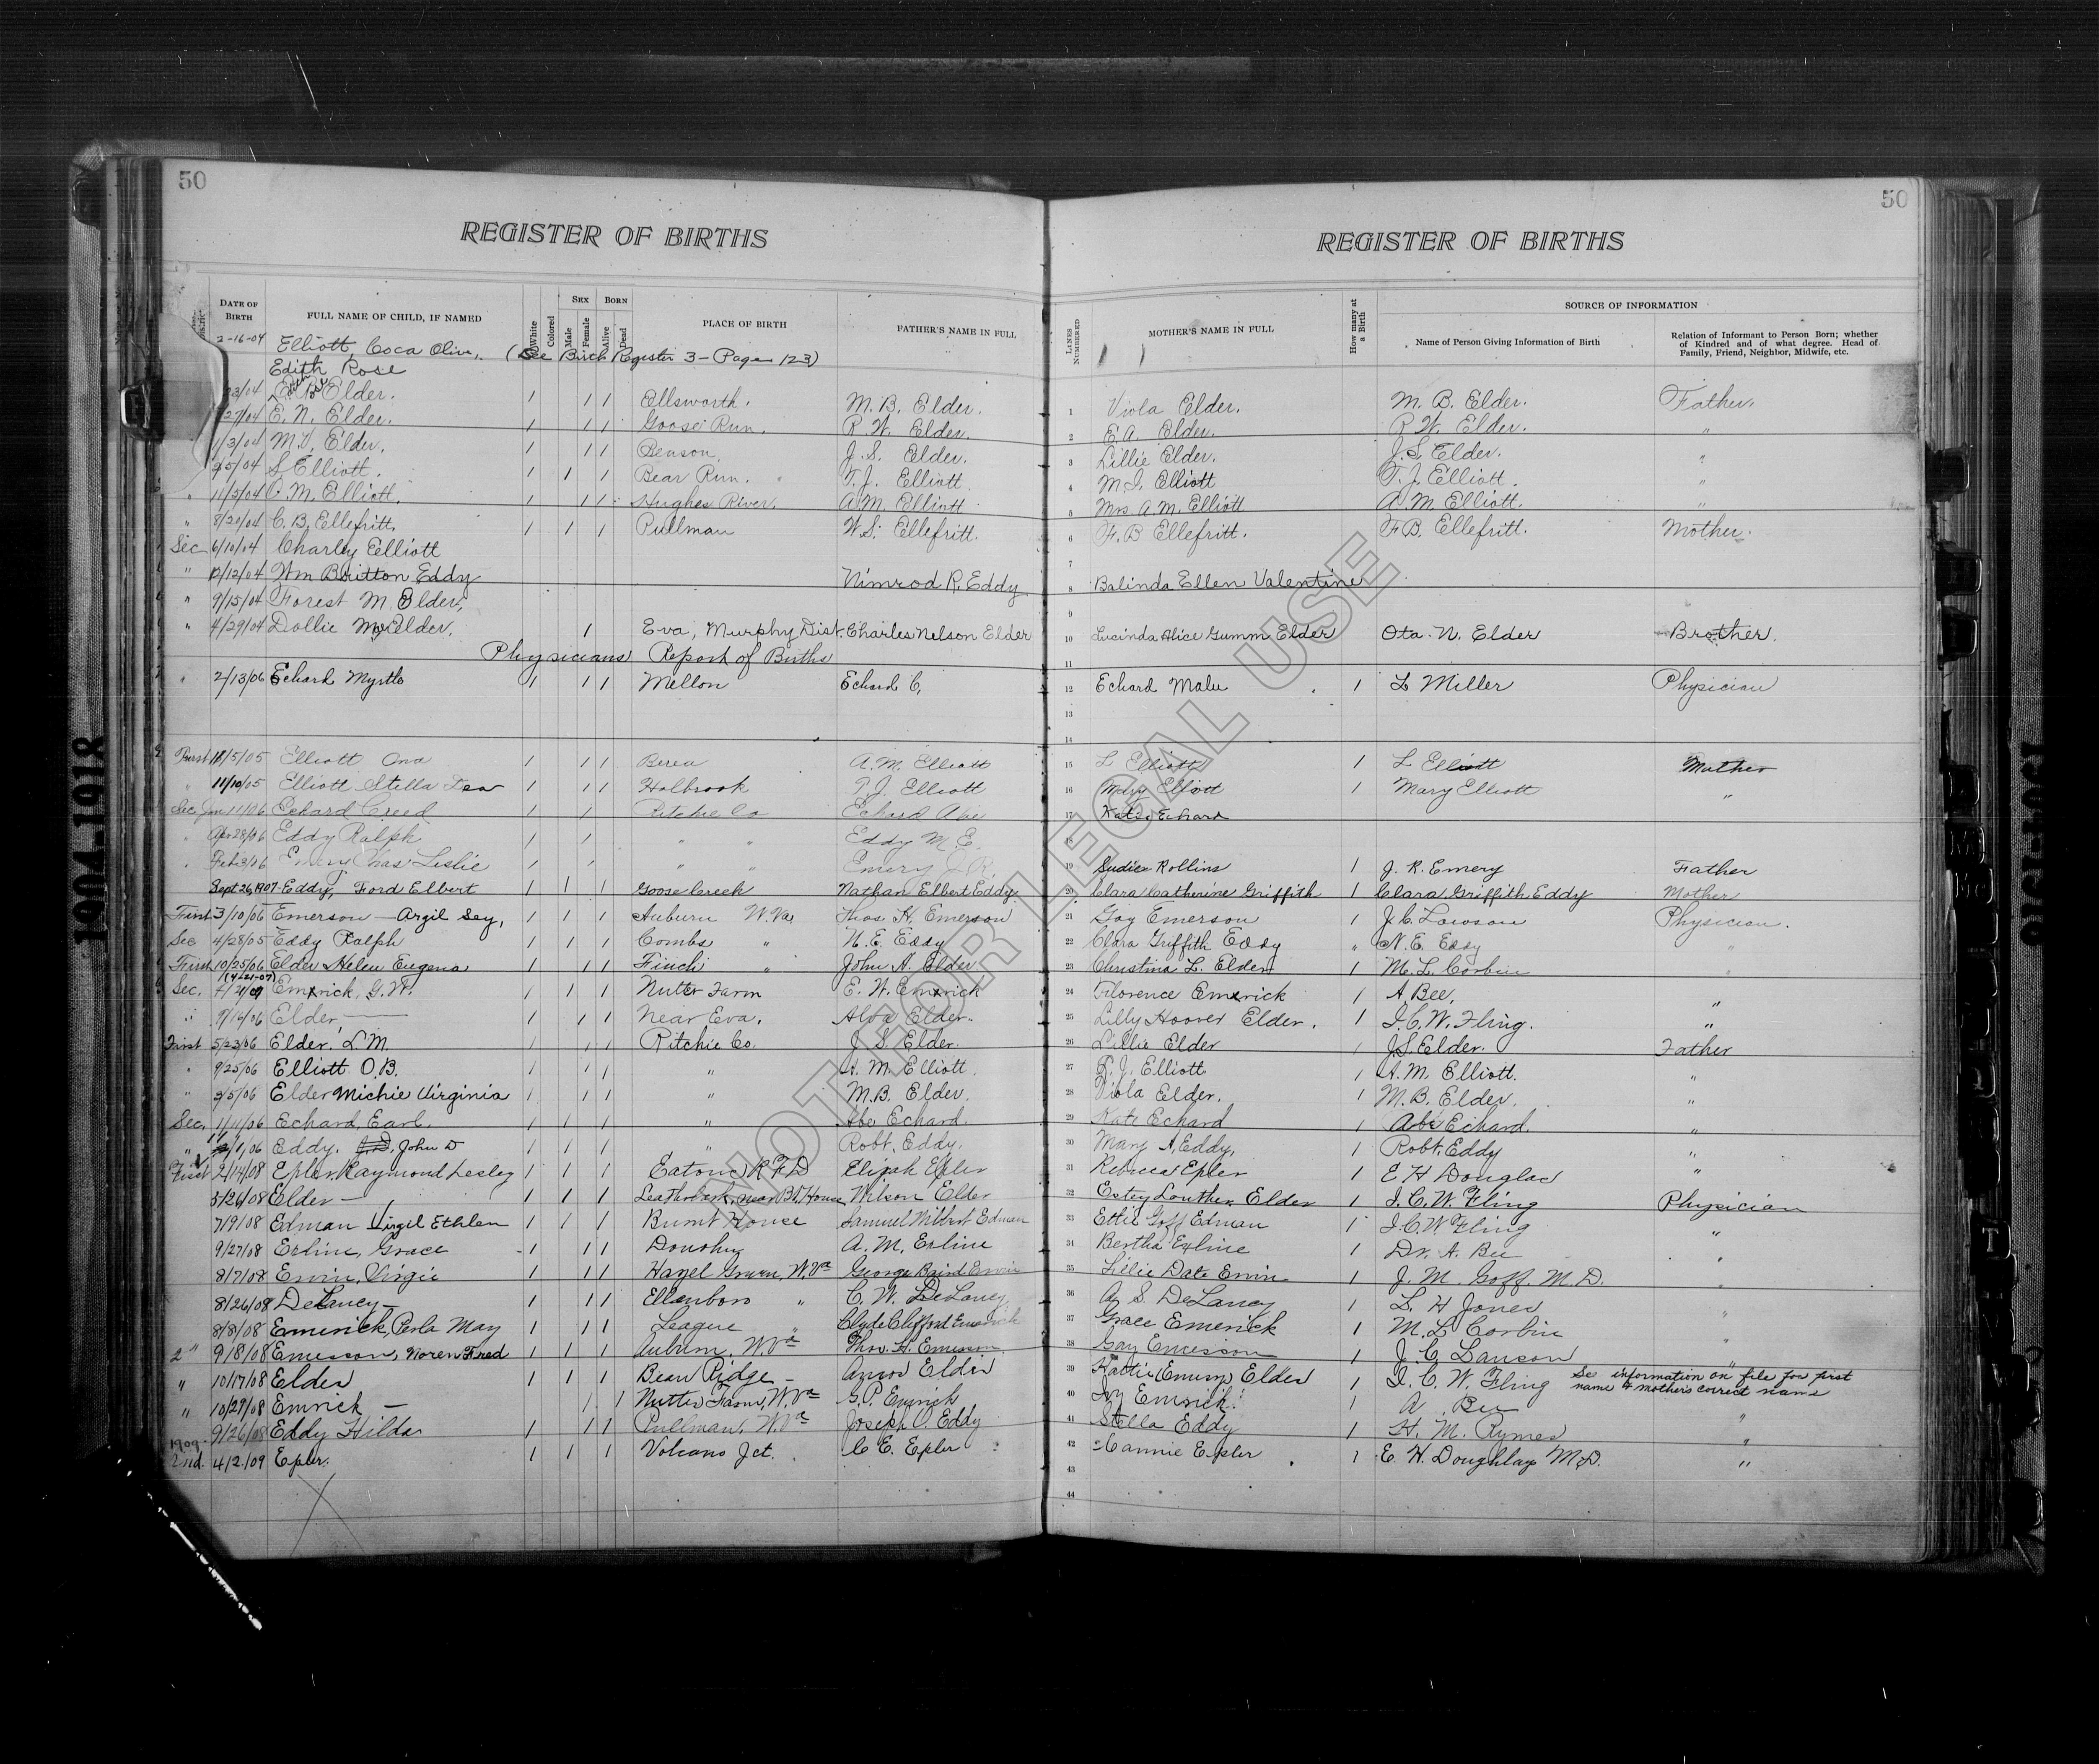 50
50
REGISTER OF BIRTHS
REGISTER OF BIRTHS
DATE OF BIRTH FULL NAME OF CHILD, IF NAMED White Colored SEX Male Female BORN Alive Dead PLACE OF BIRTH FATHER'S NAME IN FULL LINES NUMBERED MOTHER'S NAME IN FULL How many at a Birth SOURCE OF INFORMATION Name of Person Giving Information of Birth Relation of Informant to Person Born; whether of Kindred and of what degree. Head of Family, Friend, Neighbor, Midwife, etc.
2-16-04 Elliott Coca Olive. (See Birth Register 3 - Page 123)
Edith Rose
23/04 Elder. 1 1 1 Ellsworth. M. B. Elder. 1 Viola Elder. M. B. Elder. Father.
27/04 E. N. Elder. 1 1 1 Goose Run. R. W. Elder. 2 E. A. Elder. R. W. Elder. "
1/3/04 M. T. Elder. 1 1 1 Benson. J. S. Elder. 3 Lillie Elder. J. S. Elder. "
5/04 S Elliott. 1 1 1 Bear Run. T. J. Elliott. 4 M. I. Elliott T. J. Elliott. "
" 11/2/04 O. M. Elliott. 1 1 1 Hughes River. A. M. Elliott 5 Mrs A. M. Elliott A. M. Elliott. "
" 8/20/04 C. B. Ellefritt. 1 1 1 Pullman W. S. Ellefritt. 6 F. B Ellefritt. F. B. Ellefritt. Mother.
Sec 6/10/04 Charley Elliott 7
" 12/12/04 Wm Britton Eddy Nimrod R. Eddy 8 Balinda Ellen Valentine
" 9/15/04 Forest M. Elder, 9
" 4/29/04 Dollie May Elder. 1 Eva, Murphy Dist. Charles Nelson Elder 10 Lucinda Alice Gumm Elder Ota. N. Elder Brother.
Physicians Report of Births 11
" 2/13/06 Echard Myrtle 1 1 1 Mellon Echard C. 12 Echard Malu 1 L Miller Physician
13
14
First 11/5/05 Elliott Ona 1 1 1 Berea A. M. Elliott 15 L Elliott 1 L Elliott Mother
" 11/10/05 Elliott Stella Dea 1 1 1 Holbrook T. J. Elliott 16 Mary Elliott 1 Mary Elliott "
Sec Jan 11/06 Echard Creed 1 1 Ritchie Co Echard Abe 17 Kate Echard
" Apr 28/06 Eddy Ralph 1 1 " " Eddy M. E. 18
" Feb 3/06 Emery Chas Leslie 1 1 " " Emery J. R. 19 Sudie Rollins 1 J. R. Emery Father
Sept 26, 1907 - Eddy, Ford Elbert 1 1 1 Goose Creek Nathan Elbert Eddy. 20 Clara Catherine Griffith 1 Clara Griffith Eddy Mother
First 3/10/06 Emerson - Argil Sey, 1 1 1 Auburn W. Va. Thos. H. Emerson 21 Gay Emerson 1 J. C. Lawson Physician.
Sec 4/28/05 Eddy Ralph 1 1 1 Combs " N. E. Eddy 22 Clara Griffith Eddy " N. E. Eddy "
First 10/25/06 Elder Helen Eugenia 1 1 1 Finch " John A. Elder 23 Christina L. Elder 1 M. L. Corbin "
(4-21-07)
Sec. Emerick, G. W. 1 1 1 Nutter Farm E. W. Emerick 24 Florence Emerick 1 A. Bee, "
" 9/16/06 Elder, — 1 1 1 Near Eva. Alva Elder. 25 Lilly Hoover Elder. 1 I. C. W. Fling. "
First 5/23/06 Elder. L. M. 1 1 1 Ritchie Co. J. S. Elder. 26 Lillie Elder 1 J. S. Elder. Father
" 9/25/06 Elliott O. B. 1 1 1 " A. M. Elliott. 27 L. J. Elliott 1 A. M. Elliott. "
" 3/5/06 Elder Michie Virginia 1 1 1 " M. B. Elder. 28 Viola Elder. 1 M. B. Elder. "
Sec. 1/11/06 Echard, Earl. 1 1 1 " Abe Echard. 29 Kate Echard 1 Abe Echard. "
" 1/06 Eddy. John D 1 1 1 " Robt. Eddy. 30 Mary A. Eddy, 1 Robt. Eddy "
First 2/14/08 Epler, Raymond Lesley 1 1 1 Eatons RFD Elijah Epler 31 Rebecca Epler 1 E H Douglas "
5/26/08 Elder — 1 1 1 Leatherbark, near Bt. House Wilson Elder 32 Estey Louther Elder 1 I. C. W. Fling Physician
7/9/08 Edman Virgil Ethlen 1 1 1 Burnt House Samuel Wilbert Edman 33 Ettie Goff Edman 1 I. C. W Fling "
9/27/08 Erline, Grace 1 1 1 Donohu A. M. Erline 34 Bertha Exline 1 Dr. A. Bee "
8/7/08 Ervin, Virgie 1 1 1 Hazel Green, W. Va George Baird Ervin 35 Lillie Date Ervin 1 J. M. Goff. M. D. "
8/26/08 DeLancy — 1 1 1 Ellenboro " C. W. DeLancy 36 A. S. DeLancy 1 L. H Jones "
8/8/08 Emerick, Perla May 1 1 1 League " Clyde Clifford Emerick 37 Grace Emerick 1 M. L Corbin "
2 " 9/8/08 Emerson, Woren Fred 1 1 1 Auburn. W. Va Thos. H. Emerson 38 Gay Emerson 1 J. C Lawson "
" 10/17/08 Elder 1 1 1 Bear Ridge - Amos Elder 39 Hattie (Ennis) Elder 1 I. C. W. Fling Se information on file for first name & mother's correct name
" 10/29/08 Emrick — 1 1 Nutter Farm, W. Va G. P. Emrick 40 Ivy Emrick 1 A. Bee "
9/26/08 Eddy Hilda 1 1 1 Pullman, W. Va Joseph O. Eddy 41 Stella Eddy 1 H. M. Rymer "
1909 2nd. 4/2/09 Epler. 1 1 1 Volcano Jct. C E. Epler 42 Cannie Epler 1 E. H. Doughlas M. D. "
43
44
NOT FOR LEGAL USE
1904-1918